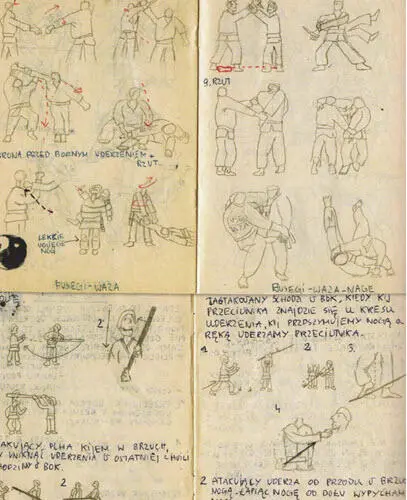 OBRONA PRZED BOCZNYM UDERZENIEM +
RZUT
LEKKIE
UGIĘCIE
NÓG
FUSEGI-WAZA
9. RZUT
FUSEGI-WAZA-NAGE
2
ATAKUJĄCY PCHA KIJEM W BRZUCH,
UNIKNĄĆ UDERZENIA W OSTATNIEJ CHWILI
W BOK.
2
ZAATAKOWANY SCHODZI W BOK, KIEDY KIJ
PRZECIWNIKA ZNAJDZIE SIĘ U KRESU
UDERZENIA, KIJ PRZYTRZYMUJEMY NOGĄ A
RĘKĄ UDERZAMY PRZECIWNIKA.
1
2
3.
4
2 ATAKUJĄCY UDERZA OD PRZODU W BRZUCH
NOGĄ - ŁAPIĄC NOGĘ OD DOŁU WYPYCHAM